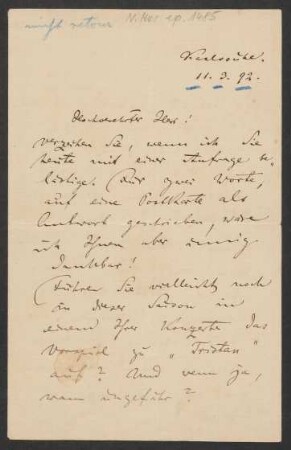 nicht retour N. Mus. ep. 1485
Karlsruhe.
11.3.92.
Hochverehrter Herr!
Verzeihen Sie, wenn ich Sie
heute mit einer Anfrage be-
lästige. Für zwei Worte,
auf eine Postkarte als
Antwort geschrieben, wäre
ich Ihnen aber innig
dankbar!
Führen Sie vielleicht noch
in dieser Saison in
einem Ihrer Konzerte das
Vorspiel zu „Tristan"
auf? Und wenn ja,
wann ungefähr?